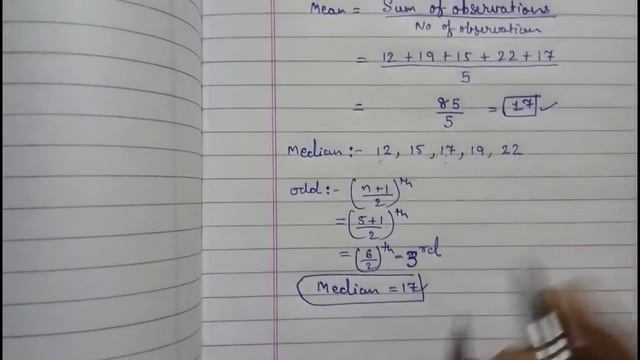 Mean = Sum of observations
No of observation
= 12 + 19 + 15 + 22 + 17
5
= 85
5
= 17 ✓
Median :- 12, 15, 17, 19, 22
odd :- (n+1/2)th
= (5+1/2)th
= (6/2)th = 3rd
Median = 17